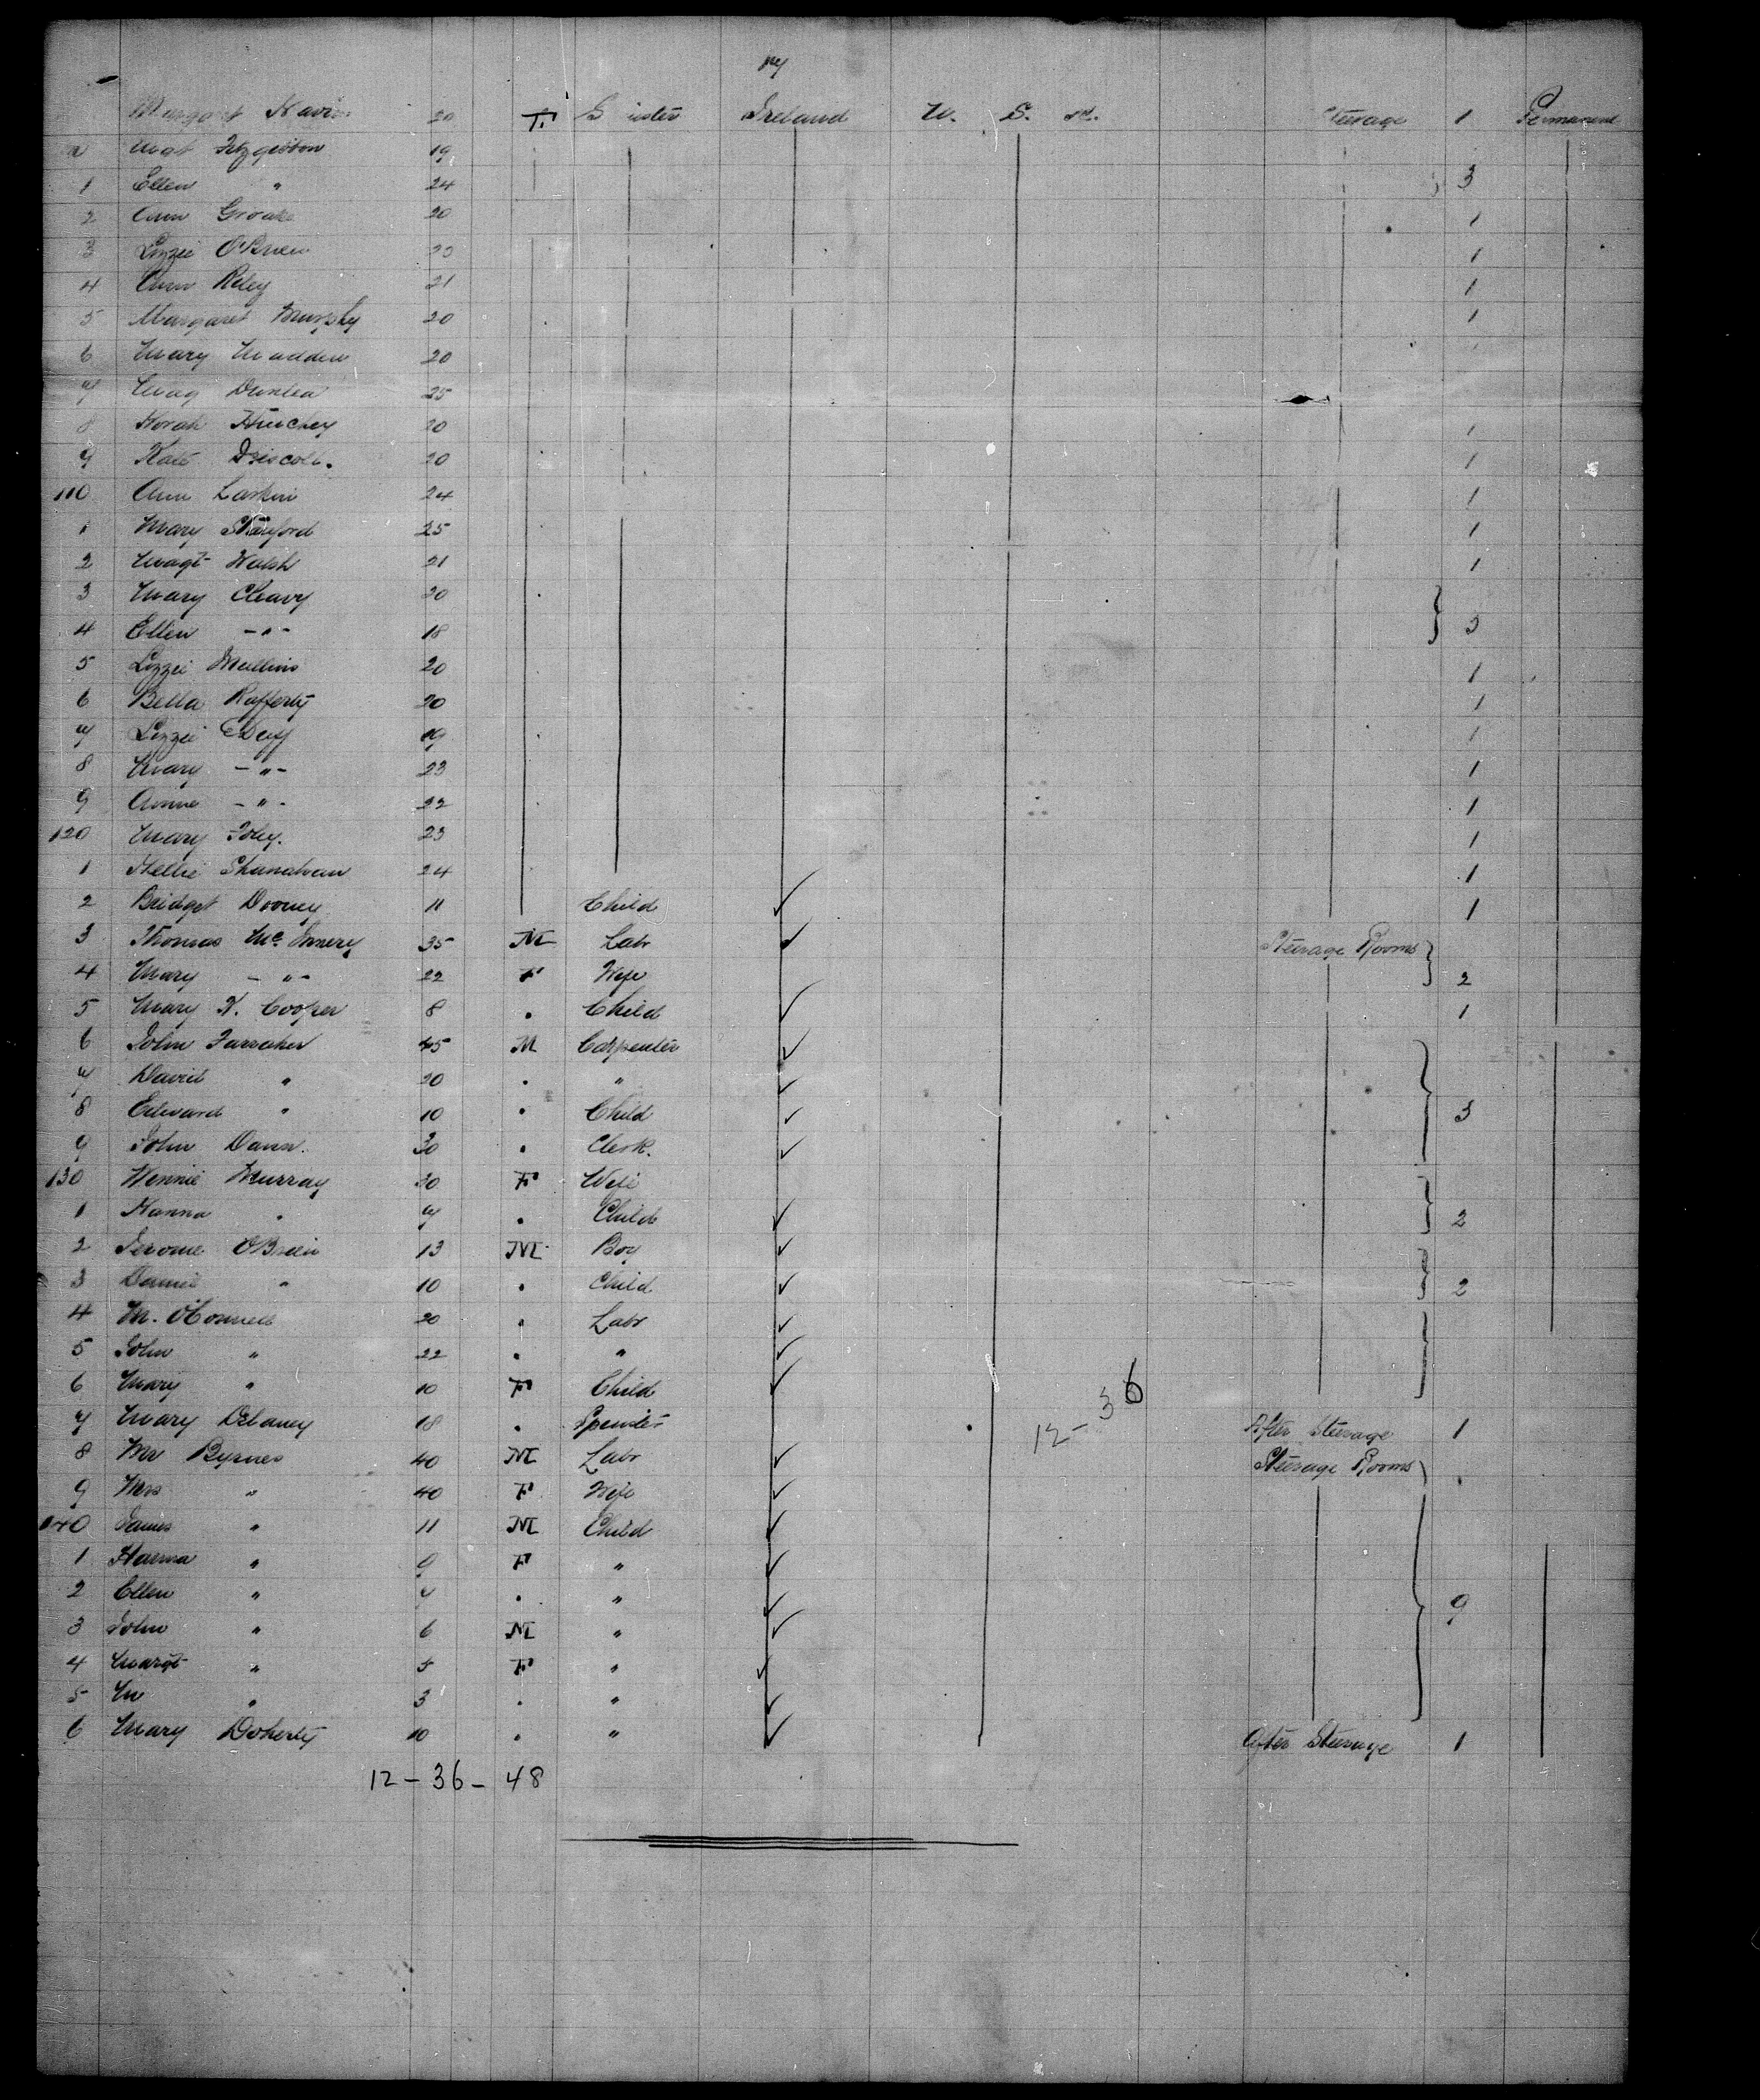 Margaret Navin 20 F. S inster Ireland U. S. A. Steerage 1 Permanent
Mat Fitzgibbon 19
1 Ellen " 24 } 3
2 Ann Groake 20 1
3 Lizzie O'Brien 20 1
4 Ann Riley 21 1
5 Margaret Murphy 20 1
6 Mary Madden 20
7 Mag Dunlea 25
8 Norah Hinchey 20 1
9 Kate Driscoll. 20 1
110 Ann Larkin 24 1
1 Mary Stanford 25 1
2 Magt Walsh 21 1
3 Mary Cleavy 20
4 Ellen -"- 18 } 3
5 Lizzie Mullins 20 1
6 Bella Rafferty 20 1
7 Lizzie Duff 19 1
8 Mary -"- 23 1
9 Annie -"- 22 1
120 Mary Foley. 23 1
1 Nellie Shanahan 24 1
2 Bridget Dooney 11 Child ✓ 1
3 Thomas McInnery 35 M Labr ✓ Steerage Rooms
4 Mary -"- 22 F Wife } 2
5 Mary K. Cooper 8 " Child ✓ 1
6 John Farraher 45 M Carpenter ✓
7 David " 20 " " ✓
8 Edward " 10 " Child ✓ } 3
9 John Dann. 30 " Clerk. ✓
130 Winnie Murray 30 F Wife
1 Hanna " 7 " Child ✓ } 2
2 Jerome O'Brien 13 M Boy ✓
3 Daniel " 10 " Child ✓ } 2
4 M. O'Connell 20 " Labr ✓
5 John " 22 " " ✓
6 Mary " 10 F Child ✓ }
12 - 36
7 Mary Delaney 18 " Spinster After Steerage 1
8 Mr Byrnes 40 M Labr ✓ Steerage Rooms
9 Mrs " 40 F Wife ✓
140 James " 11 M Child ✓
1 Hanna " 9 F " ✓
2 Ellen " 7 " " ✓ } 9
3 John " 6 M " ✓
4 Margt " 5 F " ✓
5 M " 3 " " ✓
6 Mary Doherty 10 " " ✓ After Steerage 1
12 - 36 - 48